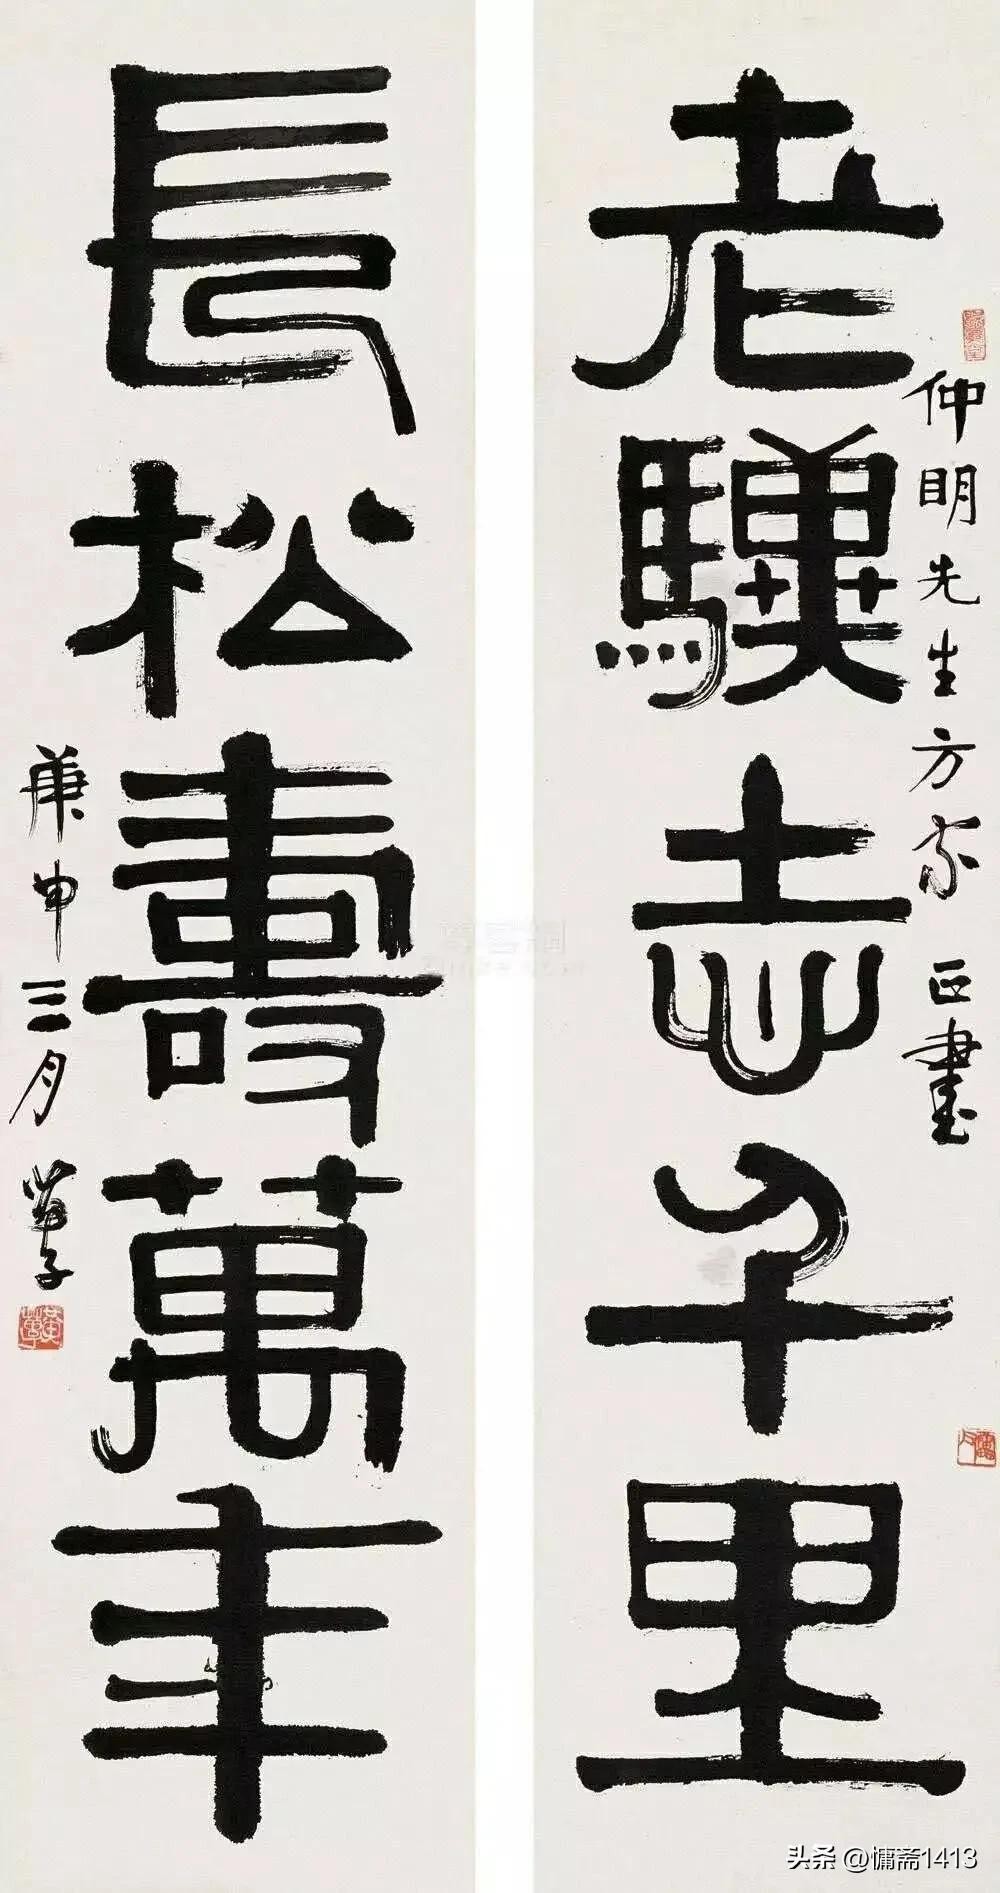 老驥志千里
仲明先生方家正
長松壽萬年
庚申三月苗子
头条 @慵斋1413